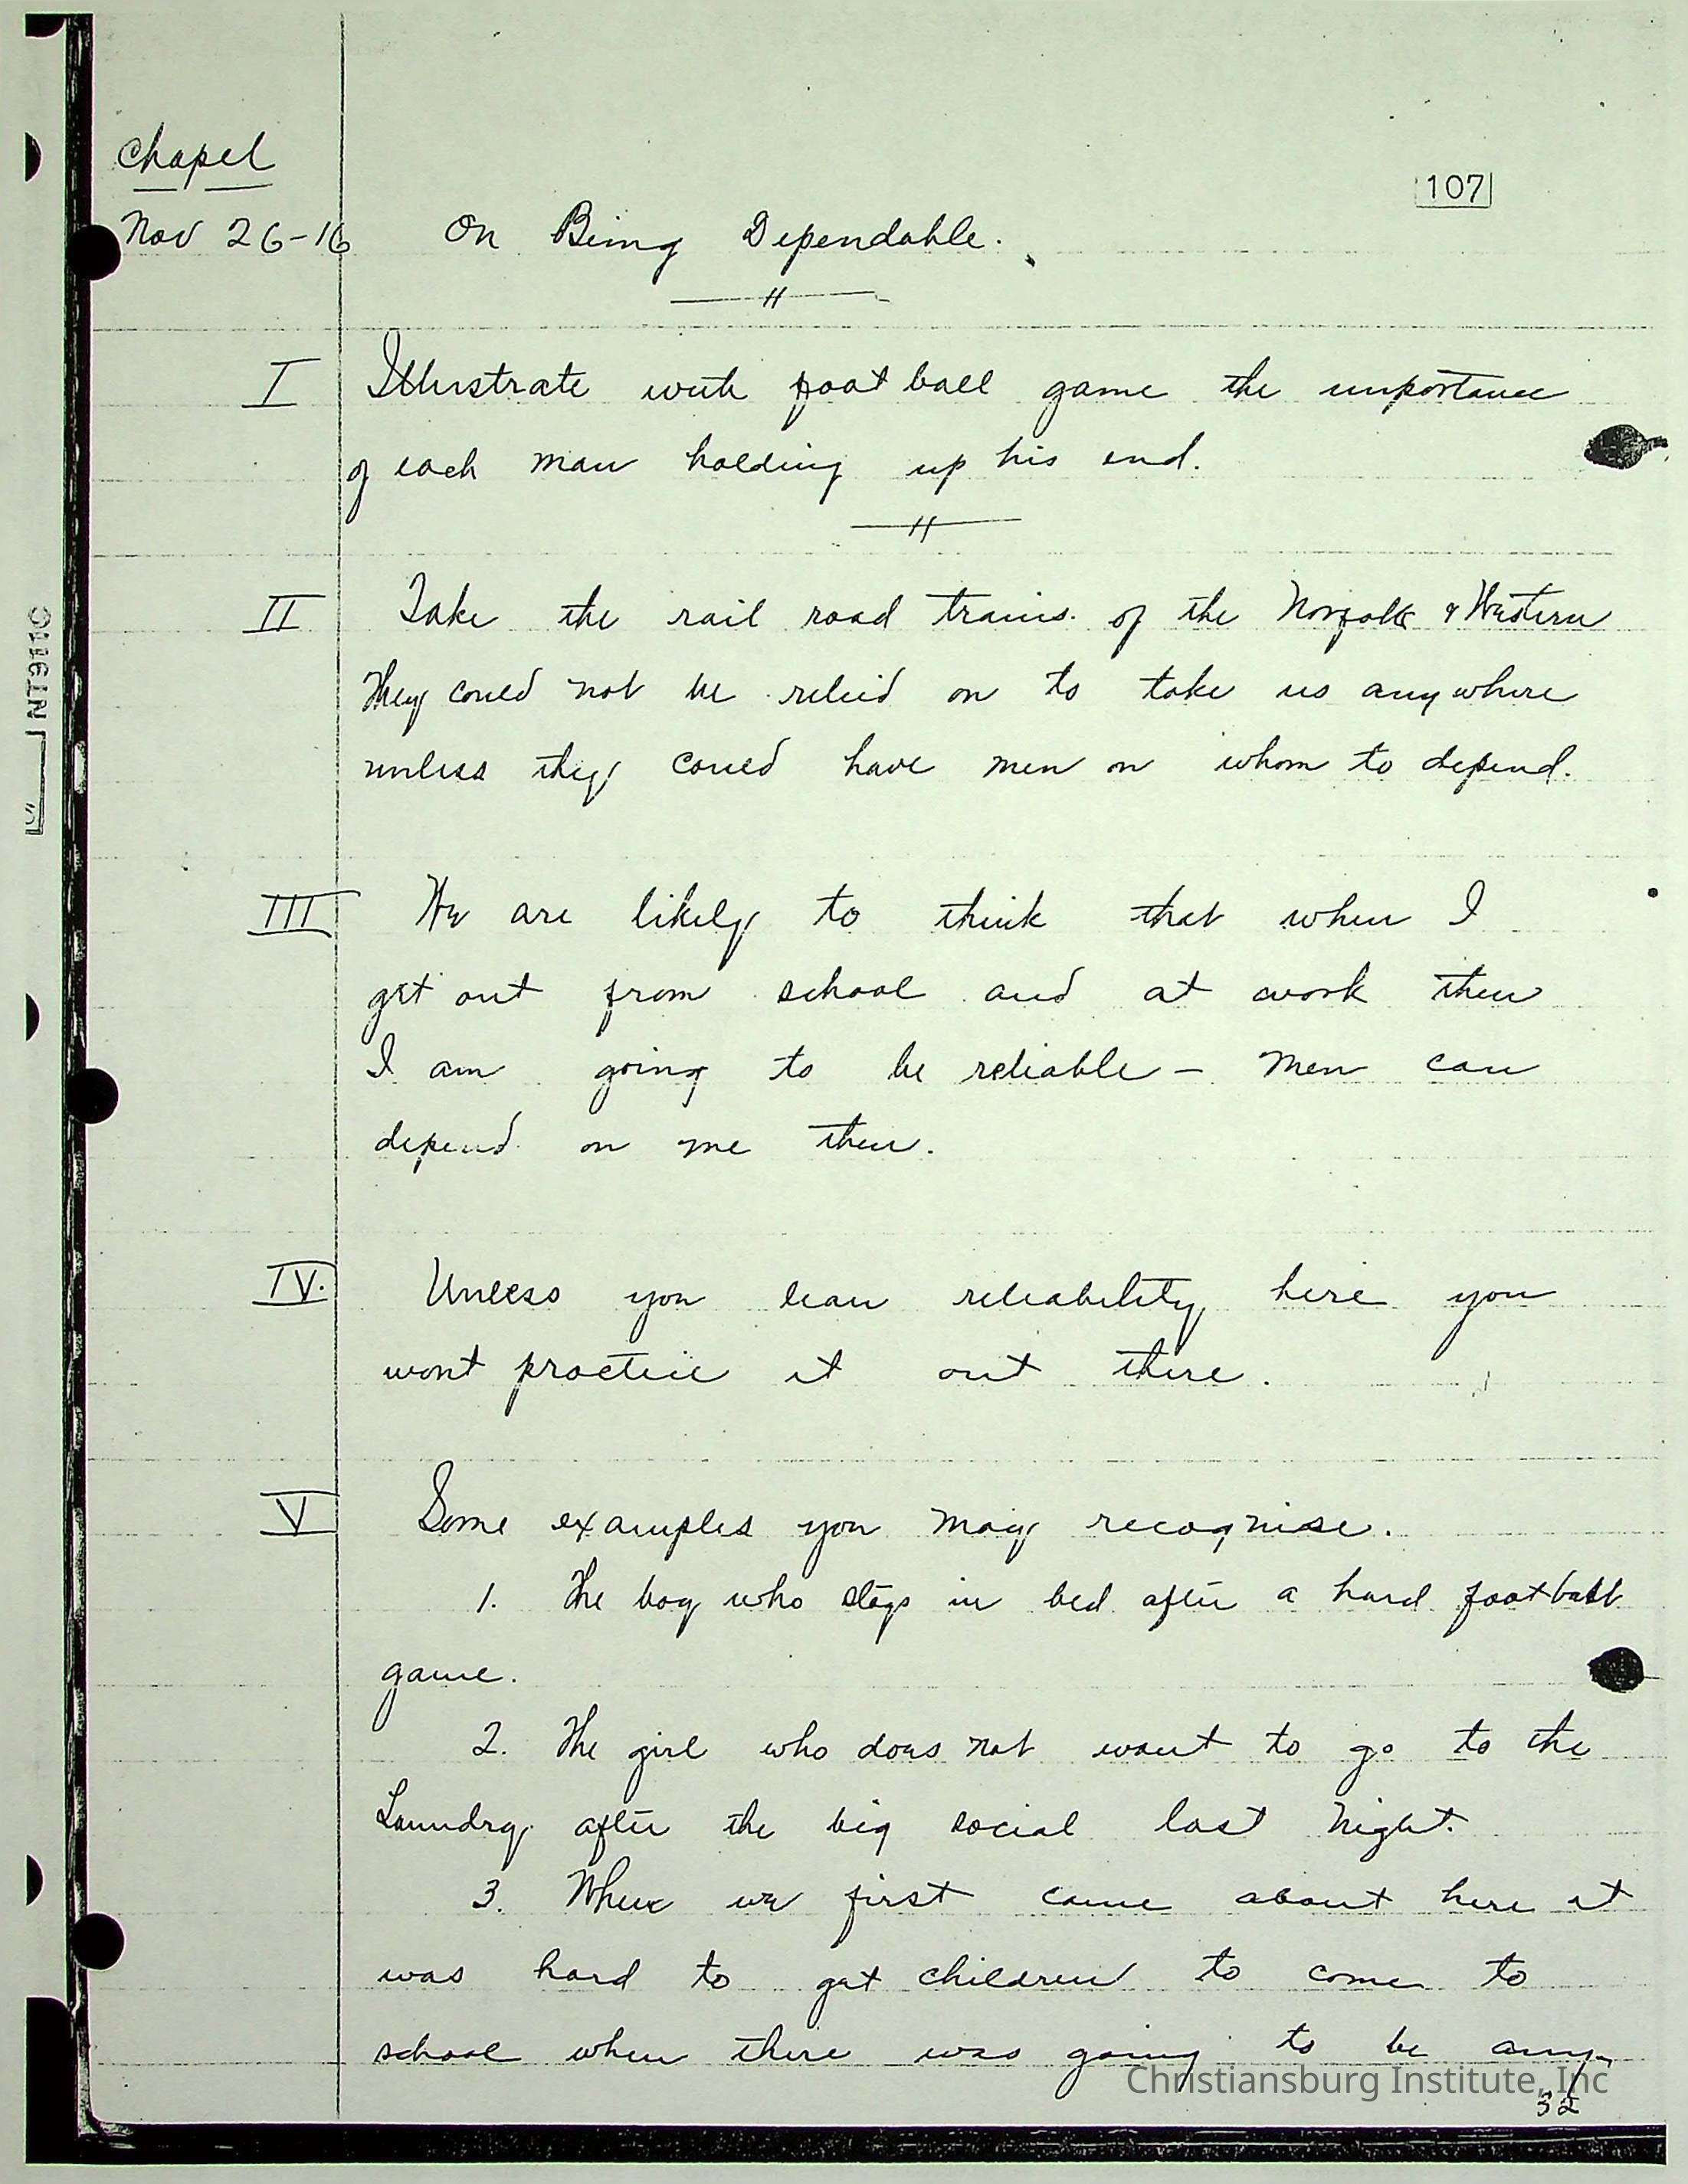 Chapel
107
Nov 26-16 On Being Dependable.
I Illustrate with foot ball game the importance
of each man holding up his end.
II Take the rail road trains of the Norfolk & Western
They could not be relied on to take us anywhere
unless they could have men on whom to depend.
III We are likely to think that when I
get out from school and at work then
I am going to be reliable - men can
depend on me then.
IV. Unless you lean reliability here you
wont practice it out there.
V Some examples you may recognise.
1. The boy who stays in bed after a hard football
game.
2. The girl who does not want to go to the
Laundry after the big social last night.
3. When we first came about here it
was hard to get children to come to
school when there was going to be any-
Christiansburg Institute, Inc
32